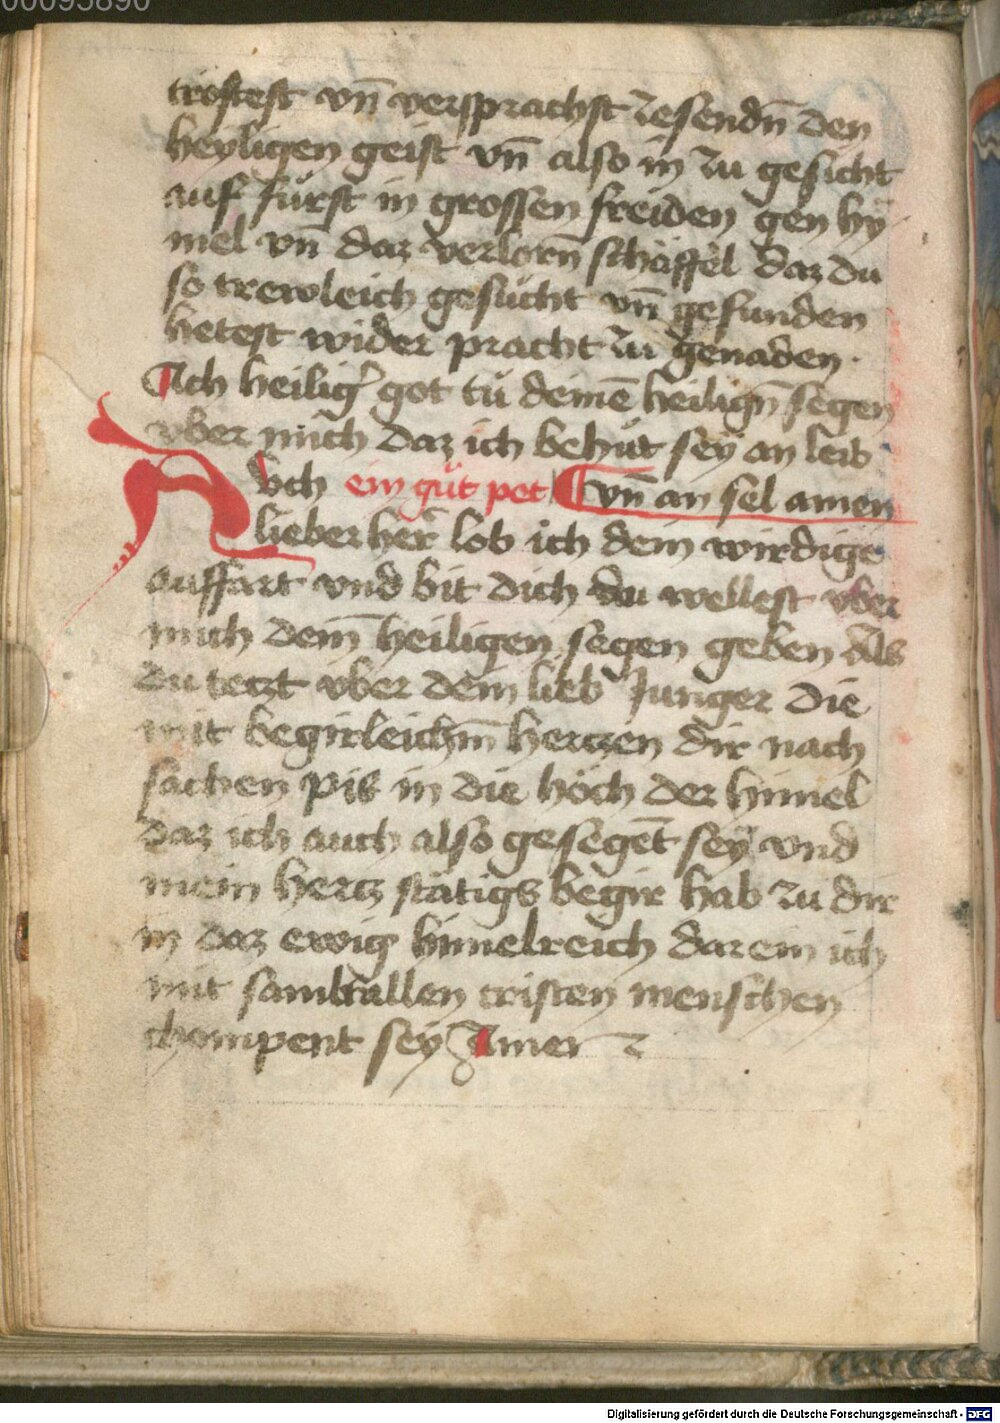 00095890
trostest vn̄ versprachst zesendn̄ den
heyligen geist vn̄ also in zu gesicht
auf fürst in grossen freiden gen hy¯
mel vn̄ daz verlorn̄ schäffel daz du
so trewleich gesücht vn̄ gefunden
hetest wider pracht zu genaden .
Ach heilig᷑ got tü deinē heilign̄ segen
vber mich daz ich behüt sey an leib
vn̄ an sel amen
ein güt pet
Avch
lieber her᷑ lob ich dein wirdige
auffart vnd bit dich du wellest vber
mich dein̄ heiligen segen geben als
du tetzt vber dein lieb Junger die
mit begirleichm̄ hertzen dir nach
sachen pis in die höch der himel
daz ich auch also gesegēt sey vnd
mein hertz statigs begir hab zu dir
in daz ewig himelreich darein ich
mit sambt allen cristen menschen
chompent sey Amen
Digitalisierung gefördert durch die Deutsche Forschungsgemeinschaft - DFG